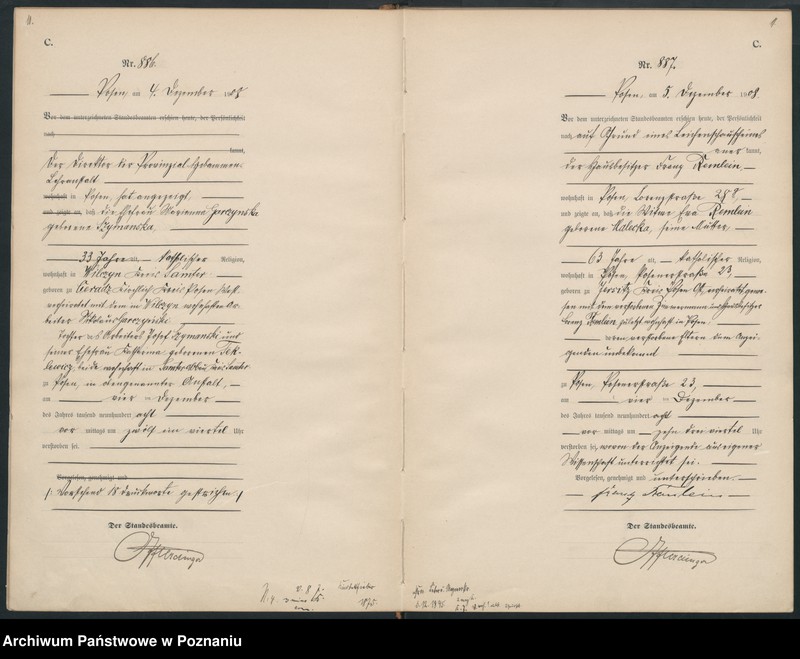 C.
Nr. 886.
Posen, am 4. Dezember 1908
Vor dem unterzeichneten Standesbeamten erschien heute, der Persönlichkeit
nach
kannt,
Der Direktor der Provinzial-Hebammen-
Lehranstalt
wohnhaft in Posen, hat angezeigt,
und zeigte an, daß die Ehefrau Marianna
geborene Szymanska,
33 Jahre alt, katholischer Religion,
wohnhaft in Wilczyn Kreis Samter
geboren zu Kreis Posen West
verheiratet mit dem in Wilczyn wohnhaften Ar-
beiter
Tochter des Arbeiters Josef Szymanski und
seiner Ehefrau Katharina geborenen
beide wohnhaft in
zu Posen, in obengenannter Anstalt,
am vier ten Dezember
des Jahres tausend neunhundert acht
vor mittags um zwölf ein viertel Uhr
verstorben sei.
Vorgelesen, genehmigt und
/: Vorstehend 18 Druckworte gestrichen :/
Der Standesbeamte.
C.
Nr. 887.
Posen, am 5. Dezember 1908.
Vor dem unterzeichneten Standesbeamten erschien heute, der Persönlichkeit
nach auf Grund eines Leichenschauscheines
aner kannt,
der Hausbesitzer Franz Remlein
wohnhaft in Posen, Lorenzstraße
und zeigte an, daß die Witwe Eva Remlein
geborene Halecka, seine Mutter
63 Jahre alt, katholischer Religion,
wohnhaft in Posen, Posenerstraße 23,
geboren zu Jersitz Kreis Posen Ost, verheiratet gewe-
sen mit dem verstorbenen Hausbesitzer
Franz Remlein, zuletzt wohnhaft in Posen
deren verstorbene Eltern dem Anzei-
genden unbekannt
zu Posen, Posenerstraße 23,
am vier ten Dezember
des Jahres tausend neunhundert acht
vor mittags um zehn drei viertel Uhr
verstorben sei, wovon der Anzeigende aus eigener
Wissenschaft unterrichtet sei.
Vorgelesen, genehmigt und unterschrieben.
Franz Remlein
Der Standesbeamte.
Archiwum Państwowe w Poznaniu